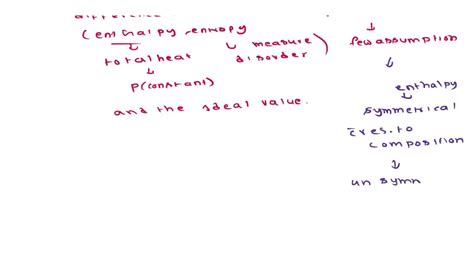 difference
(enthalpy, entropy
total heat
measure
disorder)
P(constant)
and the ideal value.
few assumption
enthalpy
symmetrical
c̄res. to
composition
un symn